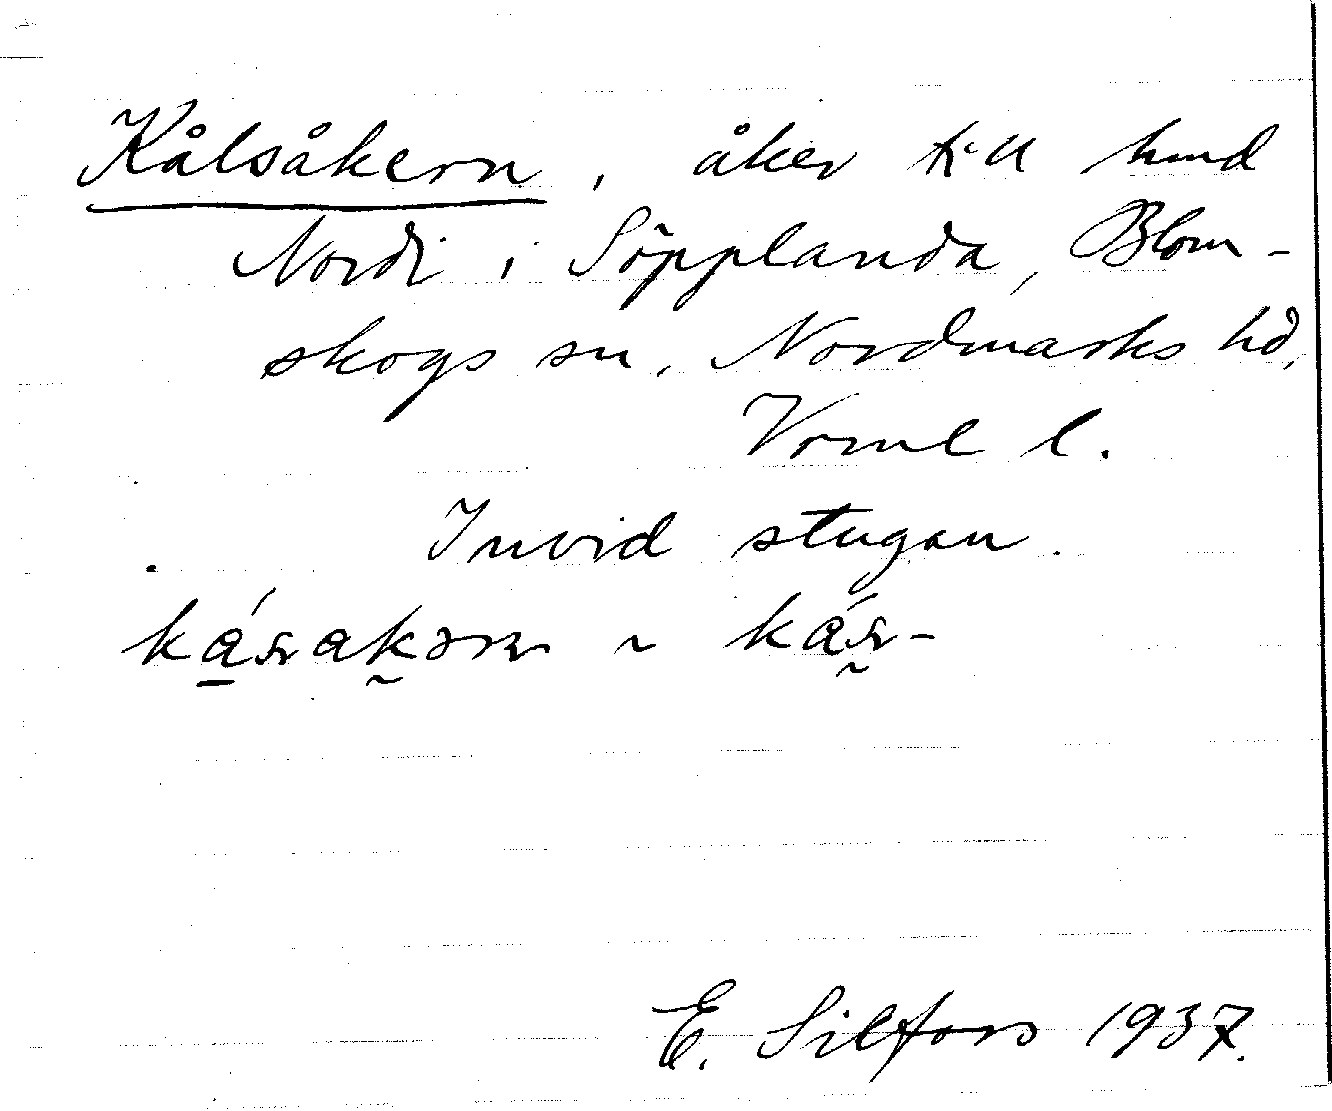 Kålsåkern, åker till hmd
Nordi i Söpplanda, Blom-
skogs sn, Nordmarks hd,
Vrml l.
Invid stugan.
E. Silfors 1937.